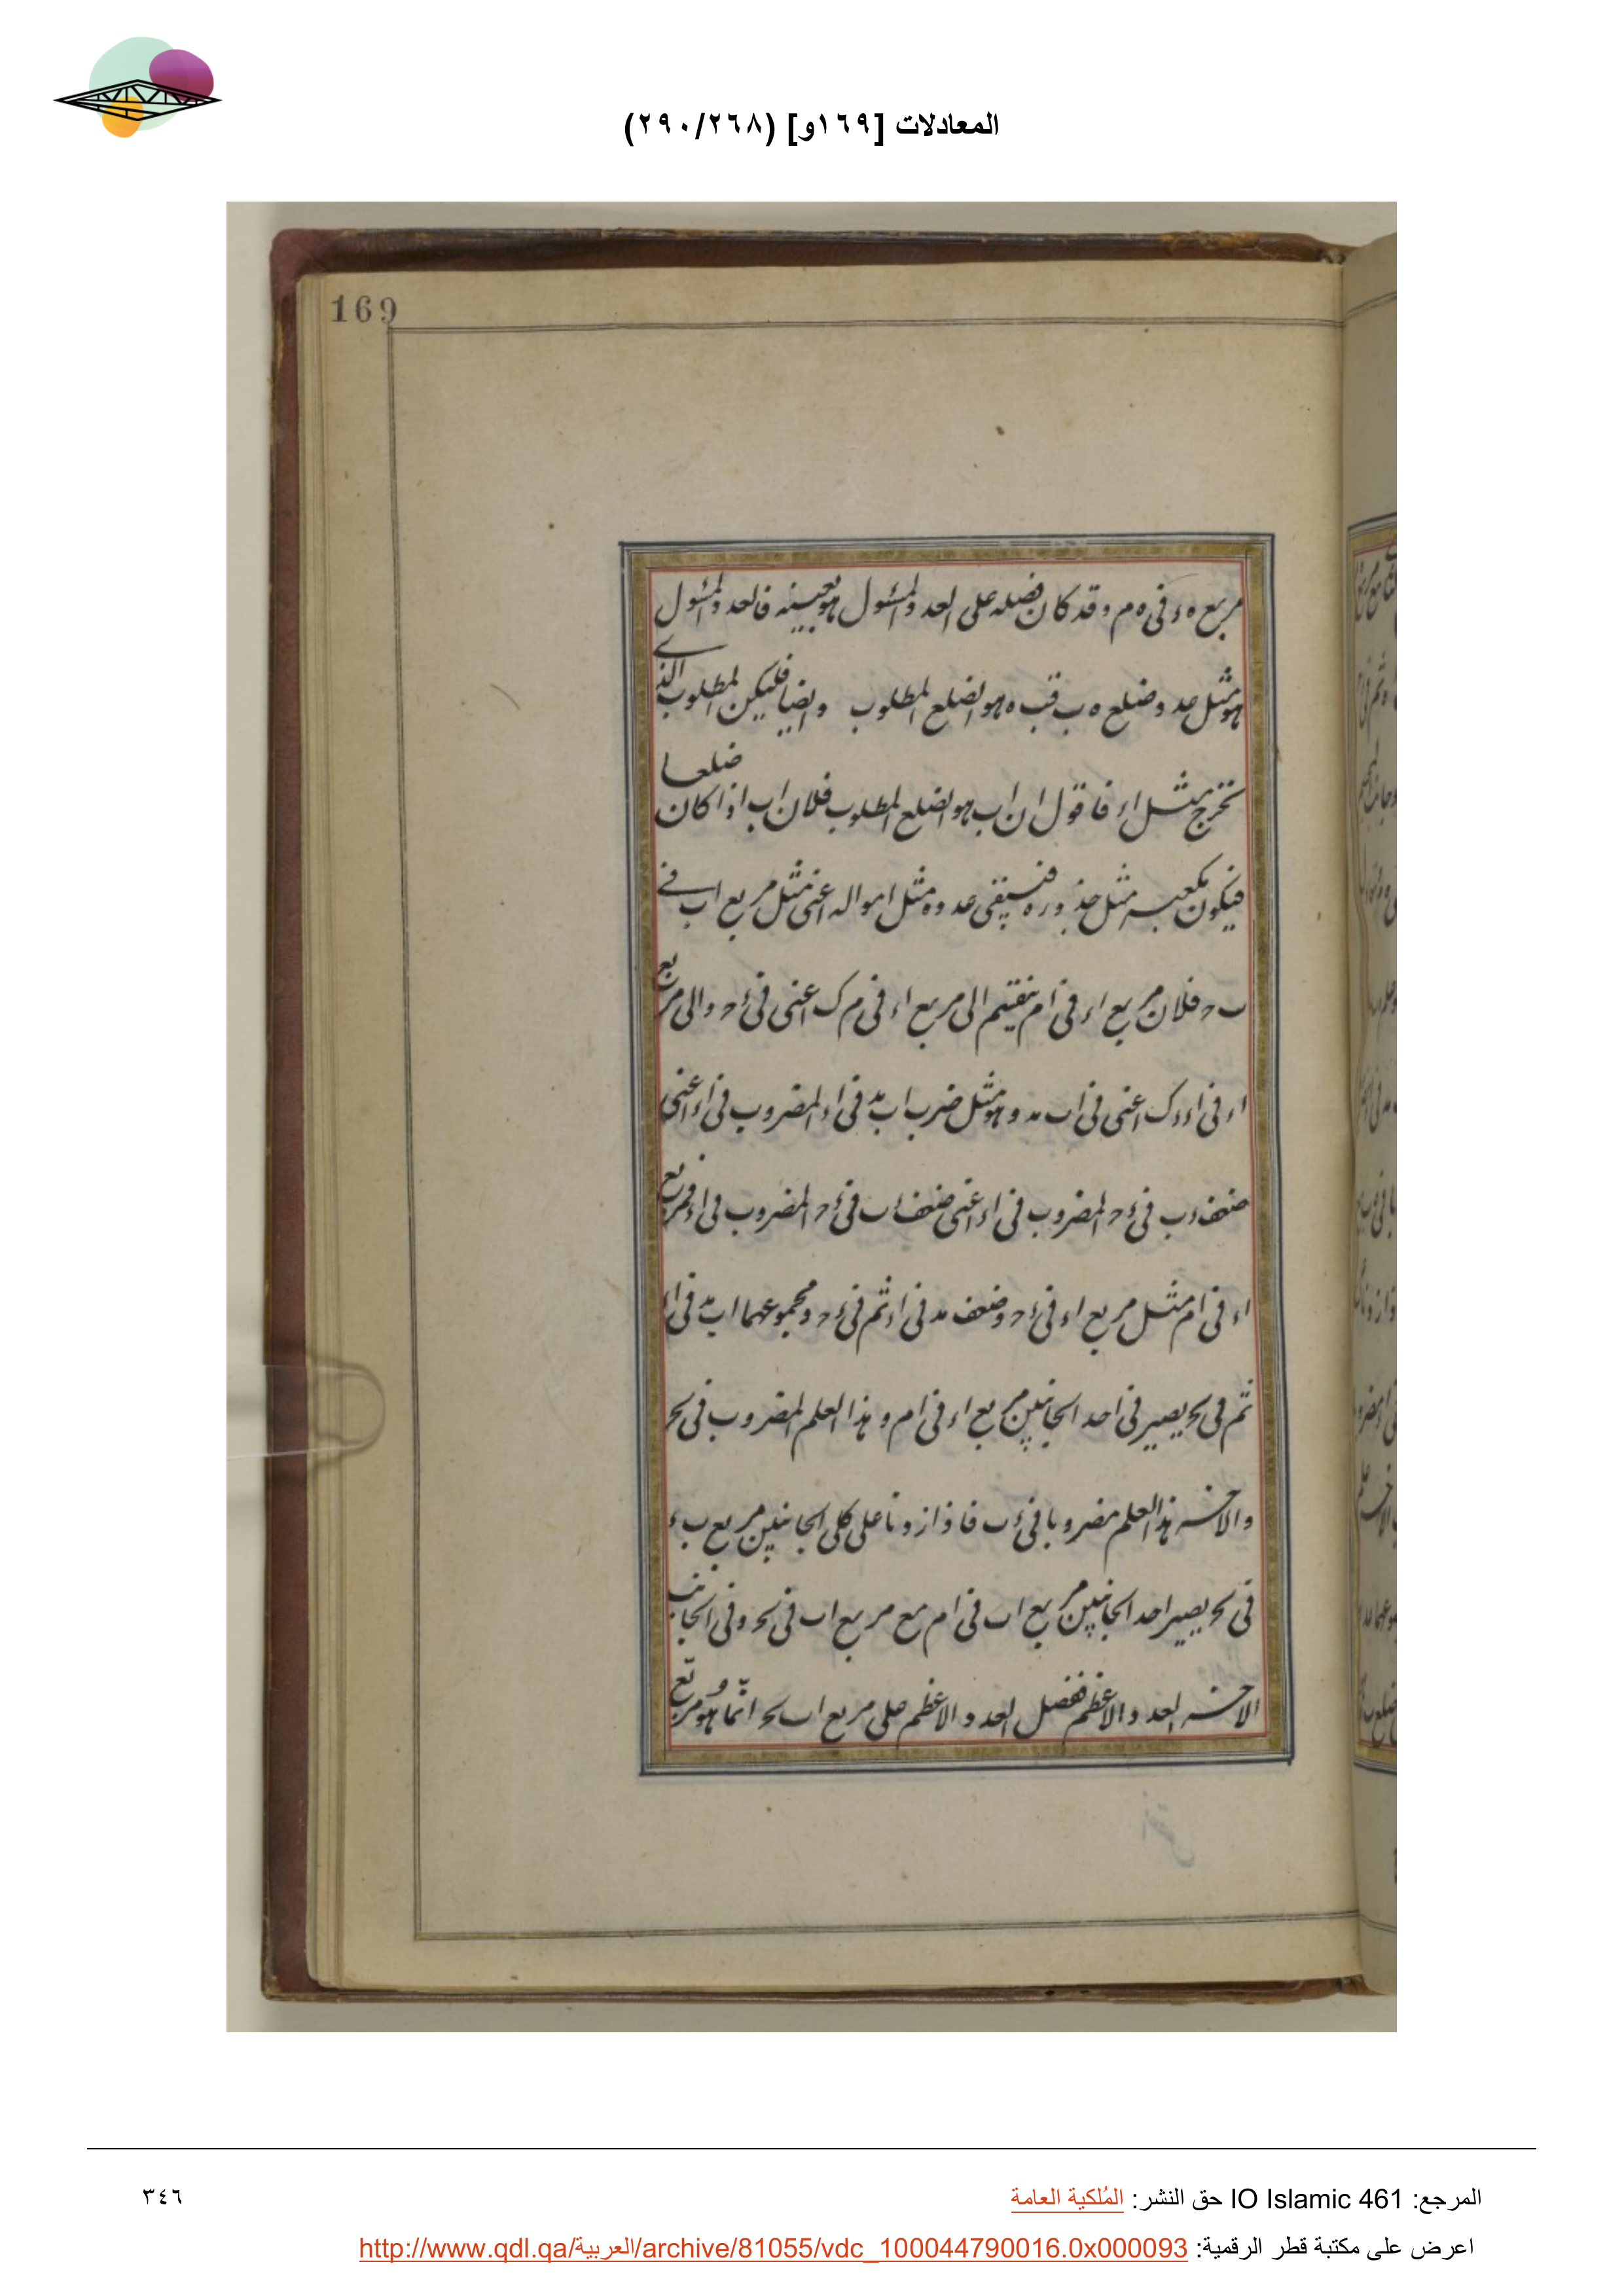 المعادلات [١٦٩و] (٢٩٠/٢٦٨)
169
مربع ه ء فى ه م وقد كان فضله على العدد المسئول هو بعينه فالعدد المسئول
هو مثل عدد وضلع ه ب فب ه هو الضلع المطلوب وايضا فليكن المطلوب الذى
تخرج مثل اء فاقول ان اب هو الضلع المطلوب فلان اب اذا كان ضلعا
فيكون مكعبه مثل جذوره فيبقى عدده مثل امواله اعنى مثل مربع اب فى
ب ح فلان مربع اء فى ام ينقسم الى مربع اء فى م ك اعنى فى ء ح والى مربع
اء فى اء ك اعنى فى اب بد وهو مثل ضرب اب بد فى اء المضروب فى اء اعنى
ضعف ء ب فى ء ح المضروب فى اء اعنى ضعف ء ب فى ء ح المضروب فى اء فمربع
اء فى ام مثل مربع اء فى ء ح وضعف بد فى اء ثم فى ء ح ومجموعهما اب بد فى اء
ثم فى بح يصير فى احد الجانبين مربع اء فى ام وهذا العلم المضروب فى بح
والاخر هذا العلم مضروبا فى ء ب فاذا زدنا على كلى الجانبين مربع ب ء
فى بح يصير احد الجانبين مربع اب فى ام مع مربع اب فى بح وفى الجانب
الاخر العدد الاعظم ففضل العدد الاعظم على مربع اب بح انما هو مربع
المرجع: IO Islamic 461 حق النشر: المُلكية العامة
٣٤٦
اعرض على مكتبة قطر الرقمية: http://www.qdl.qa/العربية/archive/81055/vdc_100044790016.0x000093